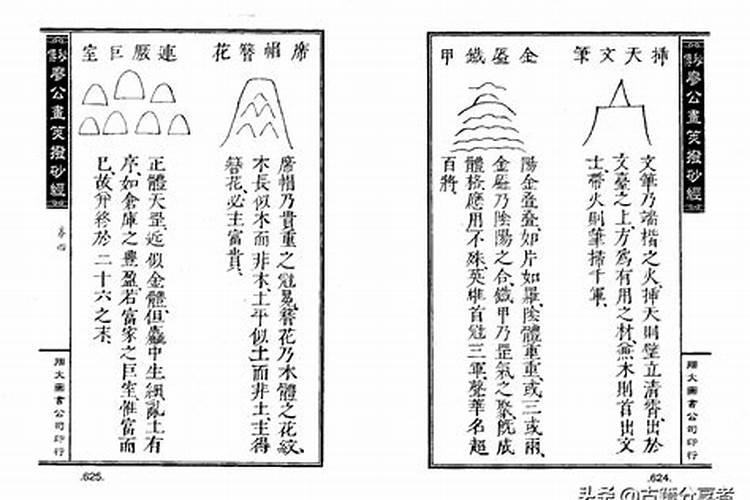 挿天文筆
文筆乃端楷之火挿天則壁立清霄出於
文臺之上方為有用之材無木則首出文
士帶火則筆掃千軍
金盔鐵甲
陽金叠叠如片如羅陰體重重或三或兩
金盔乃陰陽之合鐵甲乃罡氣之聚既成
體格應用不殊英雄首冠三軍聲華名超
百將
廖公畫筴撥砂經
翔大圖書公司印行
.624.
席帽簪花
席帽乃貴重之冠冕簪花乃木體之花紋
木長似木而非木土平似土而非土主得
簪花必主富貴
連厫巨室
正體天罡近似金體但麤中生細亂土有
序如倉庫之豐盈若富家之巨室惟富而
已故弁終於二十六之末
廖公畫筴撥砂經
卷四
翔大圖書公司印行
.625.
头条@古籍分享者